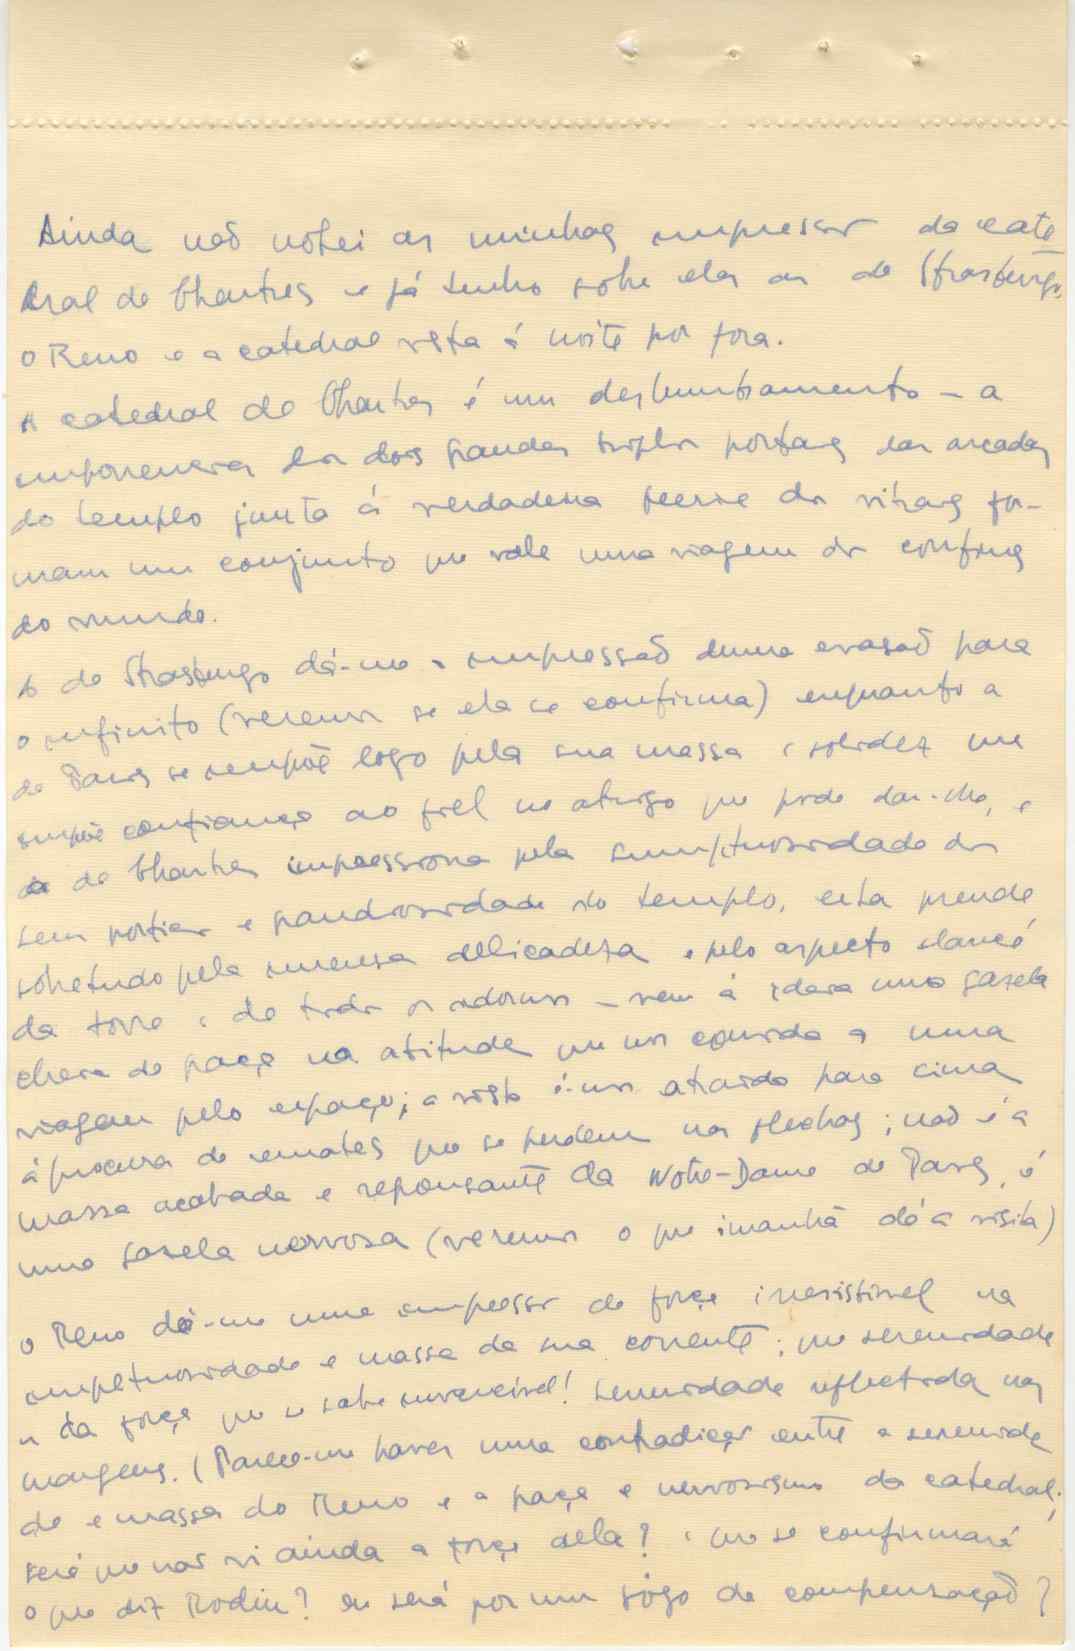 Ainda não notei as minhas impressões da cate
dral de Chartres e já tenho sobre elas as de Strasburgo,
o Reno e a catedral vista á noite por fora.
A catedral de Chartres é um deslumbramento – a
imponencia dos dois grandes triplos portaes das arcadas
do templo junta á verdadeira féerie dos vitraes for-
mam um conjunto que vale uma viagem aos confins
do mundo.
A de Strasburgo dá-me a impressão duma evasão para
o infinito (veremos se ela se confirma) enquanto a
de Paris se impõe logo pela sua massa e solidez que
impõe confiança ao fiel no abrigo que pode dar-lhe, e
a de Chartres impressiona pela sumptuosidade dos
seus porticos e grandiosidade do templo, esta prende
sobretudo pela imensa delicadeza e pelo aspecto elancé
da torre e de todos os adornos – vem á ideia uma gazela
cheia de graça na atitude que nos convida a uma
viagem pelo espaço; a vista é-nos atraida para cima
á procura de remates que se perdem nas flechas; não é a
massa acabada e repousante da Notre-Dame de Paris, é
uma gazela nervosa (veremos o que ámanhã dá a visita)
O Reno dá-me uma impressão de força irresistivel na
impetuosidade e massa da sua corrente; que serenidade
a da força que se sabe invencivel! Serenidade reflectida nas
margens. (Parece-me haver uma contradição entre a serenida
de e massa do Reno e a graça e nervosismo da catedral;
será que não vi ainda a força dela? e que se confirmará
o que diz Rodin? ou será por um jôgo de compensação?